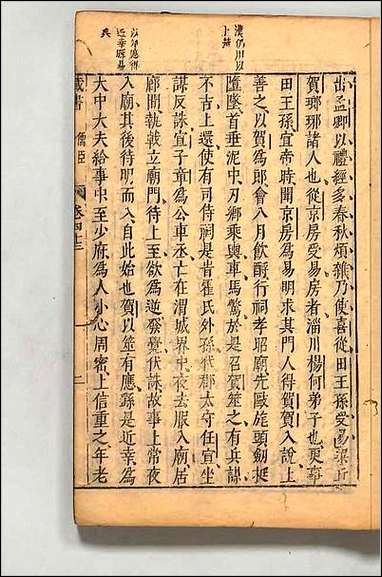 漢仍用以
上筮
出孟卿以禮經多春秋煩雜乃使喜從田王孫受易梁丘
賀瑯琊諸人也從京房受易房者淄川楊何弟子也更事
田王孫宣帝時聞京房為易明求其門人得賀賀入說上
善之以賀為郎八月飲酎行祠孝昭廟先敺旄頭劍挺
墮墜首垂泥中刃鄉乘輿車馬驚於是召賀筮之有兵謀
不吉上還使有司侍祠是昔霍氏外孫代郡太守任宣坐
謀反誅宣子章為公車丞亡在渭城界中夜去服入廟居
廊間執戟立廟門待上至欲為逆發覺伏誅故事上常夜
入廟其後待明而入自此始也賀以筮有應繇是近幸為
大中大夫給事中至少府為人小心周密上信重之年老
藏書 儒臣 卷四十三 二